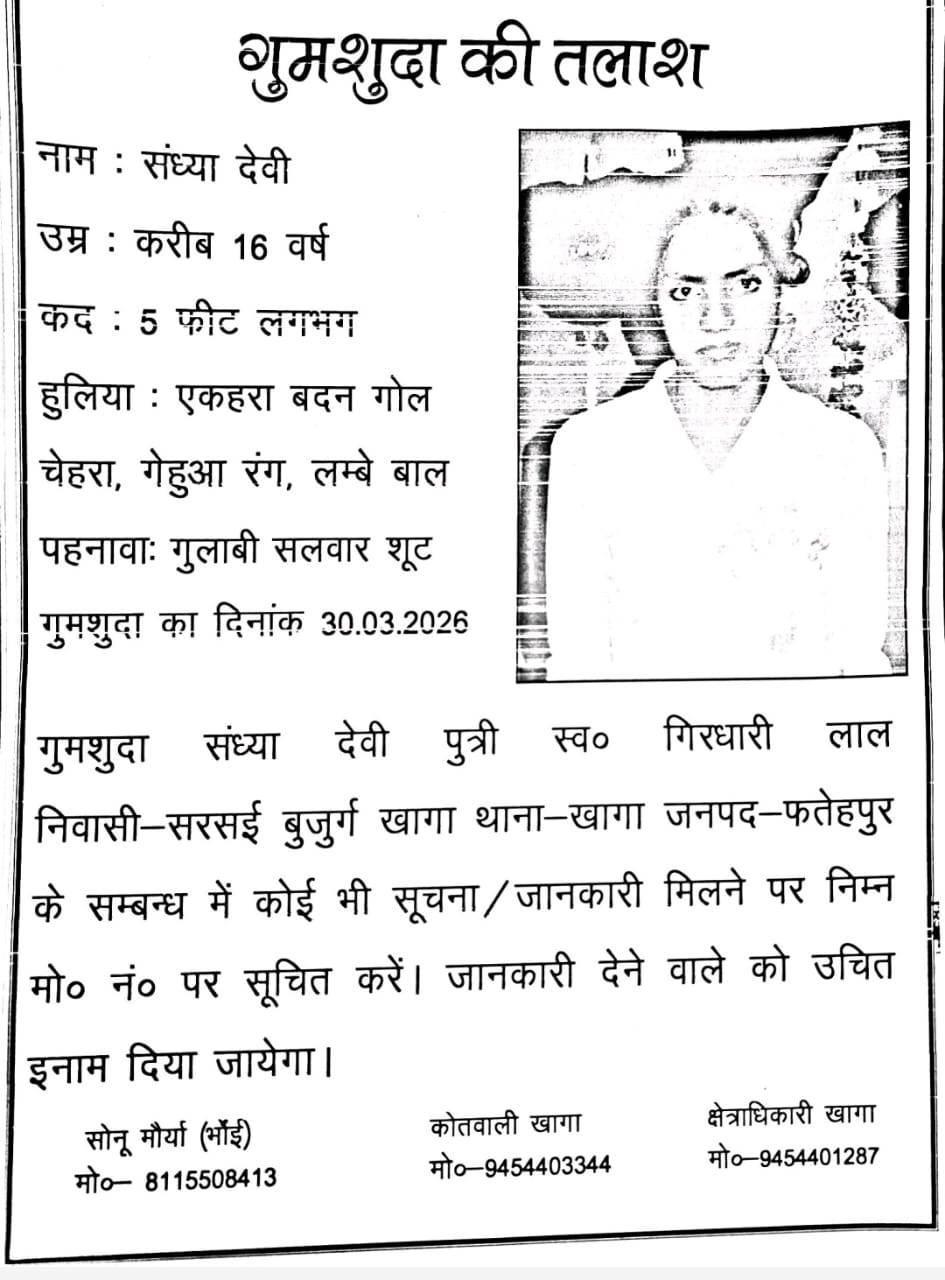 गुमशुदा की तलाश
नाम : संध्या देवी
उम्र : करीब 16 वर्ष
कद : 5 फीट लगभग
हुलिया : एकहरा बदन गोल
चेहरा, गेहुआ रंग, लम्बे बाल
पहनावाः गुलाबी सलवार शूट
गुमशुदा का दिनांक 30.03.2026
गुमशुदा संध्या देवी पुत्री स्व० गिरधारी लाल
निवासी–सरसई बुजुर्ग खागा थाना–खागा जनपद–फतेहपुर
के सम्बन्ध में कोई भी सूचना/जानकारी मिलने पर निम्न
मो० नं० पर सूचित करें। जानकारी देने वाले को उचित
इनाम दिया जायेगा।
सोनू मौर्या (भॉई)
मो०– 8115508413
कोतवाली खागा
मो०–9454403344
क्षेत्राधिकारी खागा
मो०–9454401287